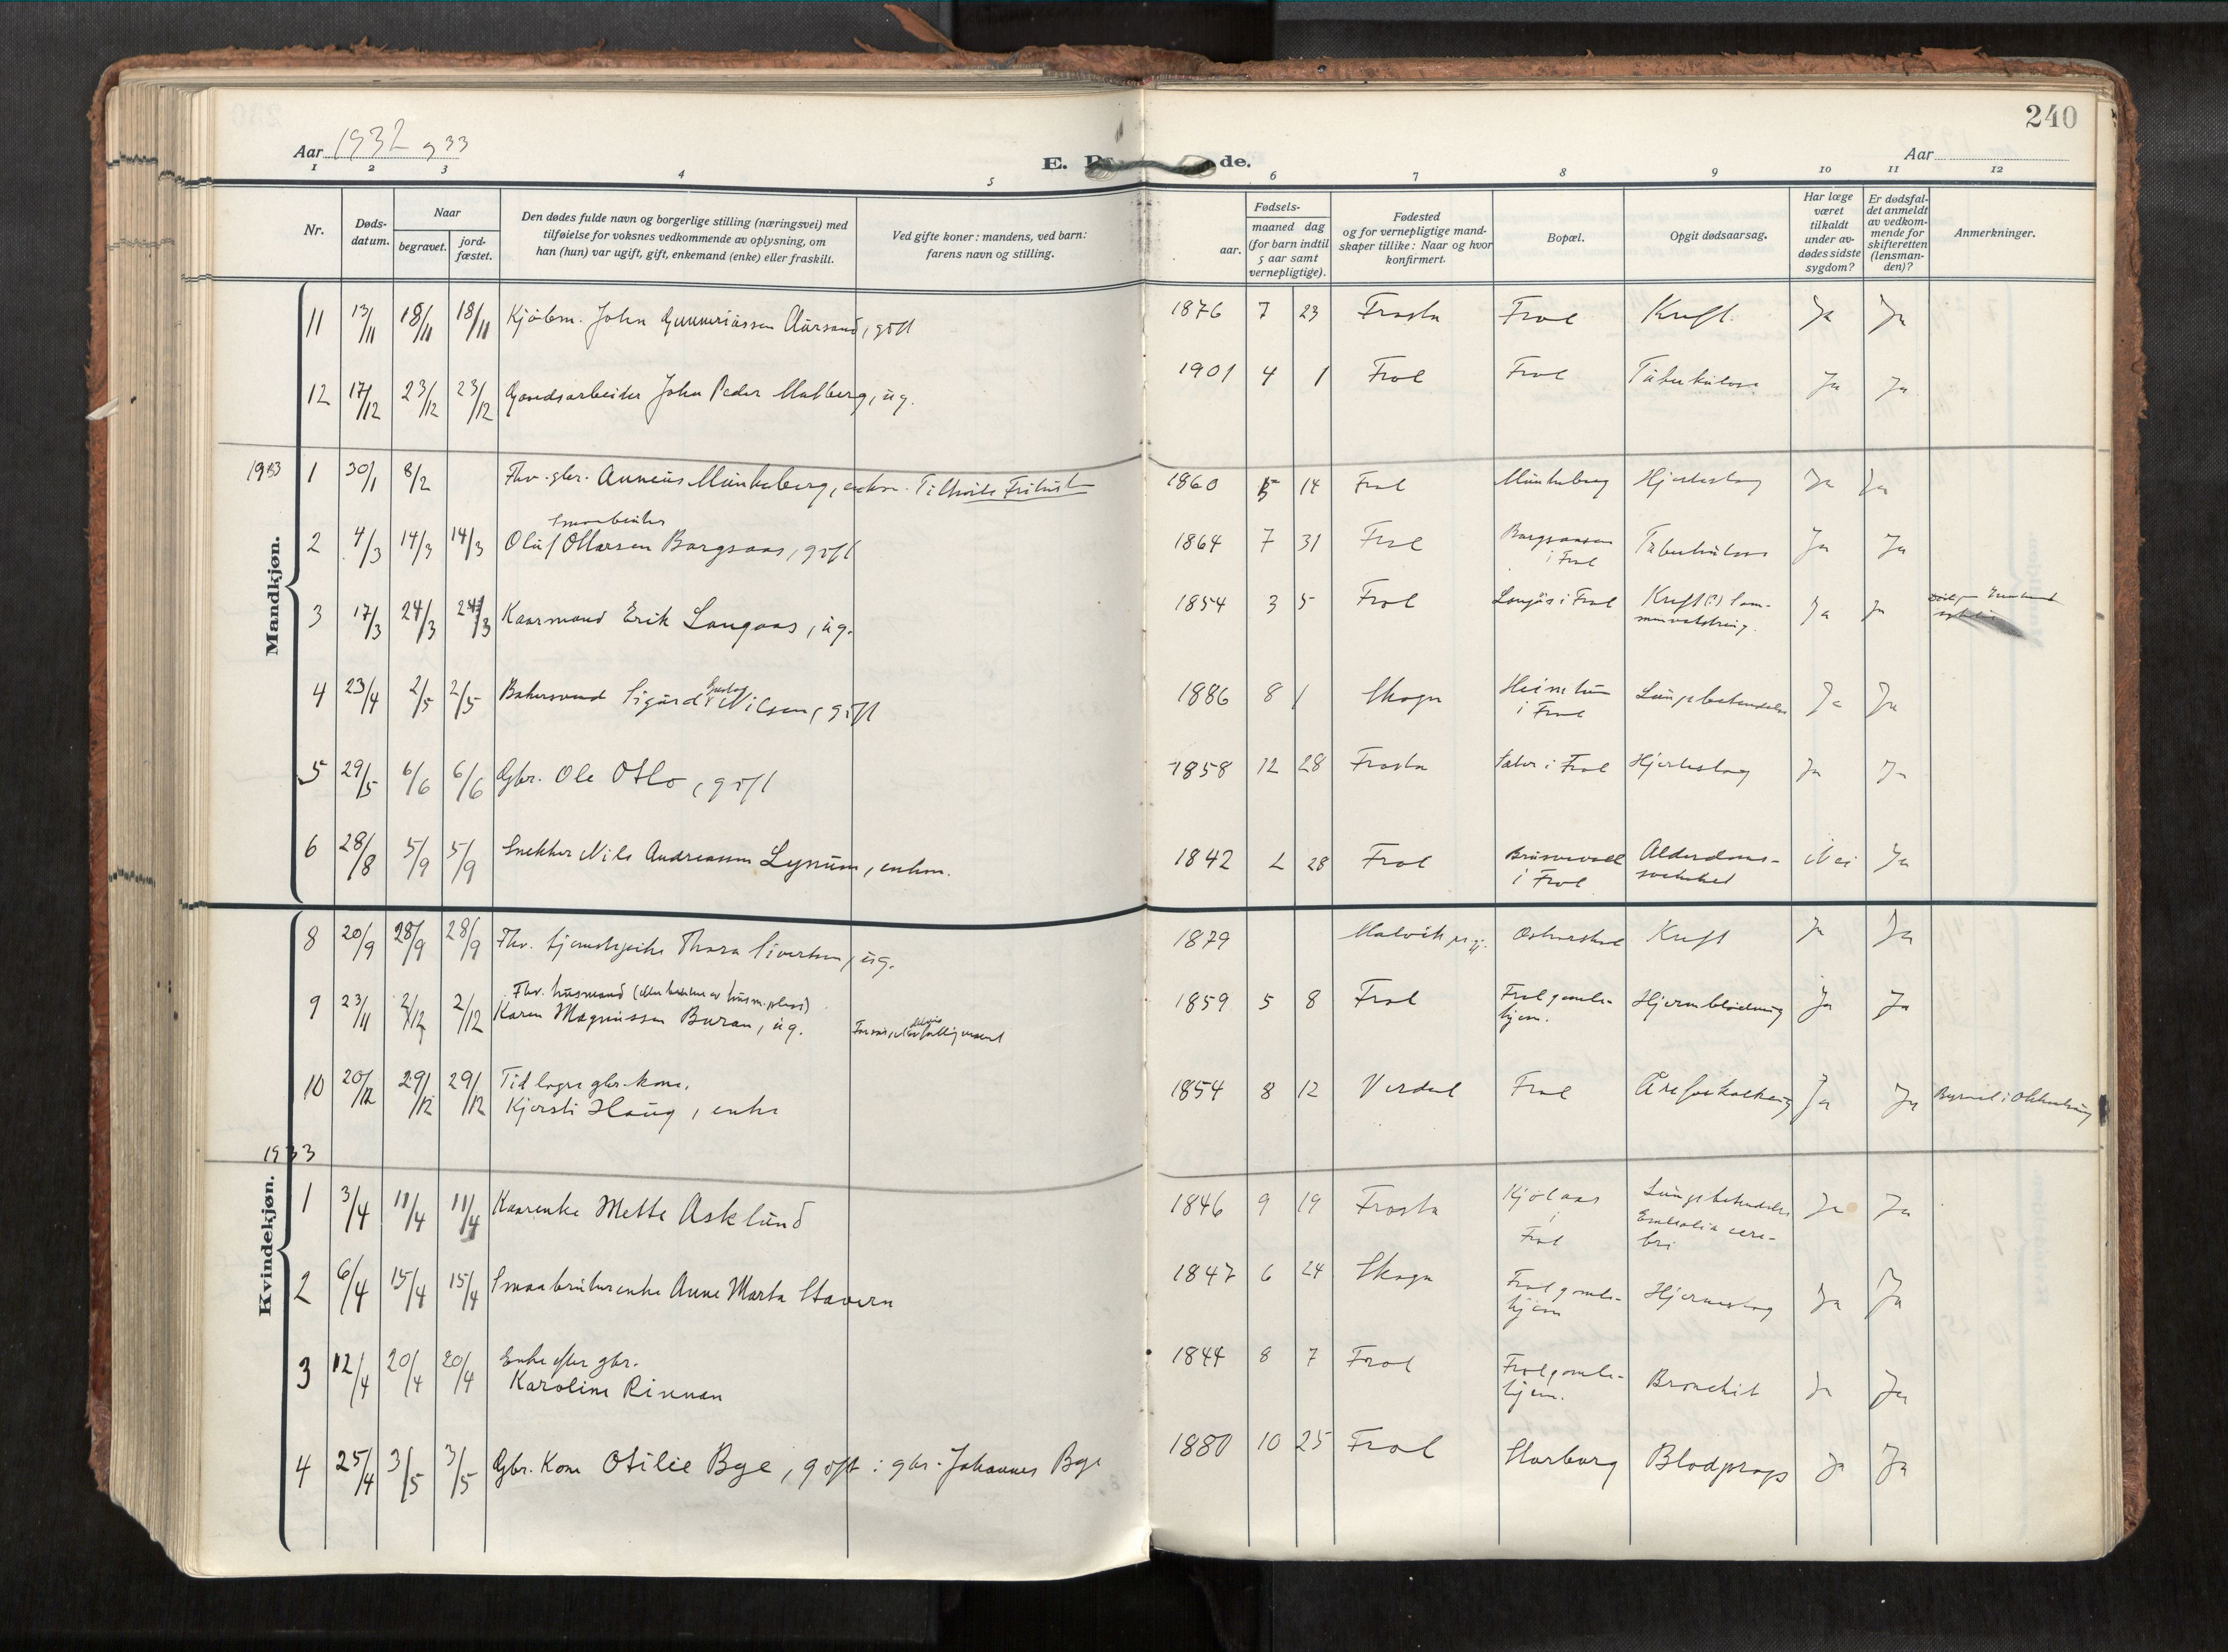 240
Aar 1932 og 33
E. D de.
Aar
1 2 3 4 5 6 7 8 9 10 11 12
Nr.
Døds-
datum.
Naar
begravet.
jord-
fæstet.
Den dødes fulde navn og borgerlige stilling (næringsvei) med
tilføielse for voksnes vedkommende av oplysning, om
han (hun) var ugift, gift, enkemand (enke) eller fraskilt.
Ved gifte koner: mandens, ved barn:
farens navn og stilling.
Fødsels-
aar.
maaned dag
(for barn indtil
5 aar samt
vernepligtige).
Fødested
og for vernepligtige mand-
skaper tillike: Naar og hvor
konfirmert.
Bopæl.
Opgit dødsaarsag.
Har læge
været
tilkaldt
under av-
dødes sidste
sygdom?
Er dødsfal-
det anmeldt
av vedkom-
mende for
skifteretten
(lensman-
den)?
Anmerkninger.
Mandkjøn.
11 13/11 18/11 18/11 Kjøbm. John Aarsand, gift 1876 7 23 Frosta Frol Kreft Ja Ja
12 17/12 23/12 23/12 Gaardsarbeider John Peder Malberg, ug. 1901 4 1 Frol Frol Tuberkulose Ja Ja
1933
1 30/1 8/2 Fhv. gbr. Anneus Munkeberg, enkm. Tilhørte Frikirk 1860 5 14 Frol Munkeberg Hjerteslag Ja Ja
Smaabruker
2 4/3 14/3 14/3 Oluf Ottarsen Borgsaas, gift 1864 7 31 Frol Borgsaasen Tuberkulose Ja Ja
i Frol
3 17/3 24/3 24/3 Kaarmand Erik Langaas, ug. 1854 3 5 Frol Langås i Frol Kreft (?) Ja Ja
4 23/4 2/5 2/5 Bakersvend Sigurd Nilsen, gift 1886 8 1 Skogn Heimtun Lungebetendelse Ja Ja
i Frol
5 29/5 6/6 6/6 Gbr. Ole Oslo, gift 1858 12 28 Frosta Sæter i Frol Hjerteslag Ja Ja
6 28/8 5/9 5/9 Snekker Nils Andreassen Lynum, enkm. 1842 2 28 Frol Brusvevold Alderdoms- Nei Ja
i Frol svakhet
Kvindekjøn.
8 20/9 28/9 28/9 Fhv. tjenestepike Thora Sivertsen, ug. 1879 Malvik Kreft Ja Ja
Fhv. husmand (eller bruker av husm.plass)
9 23/11 2/12 2/12 Karen Magnussen Buran, ug. 1859 5 8 Frol Frol gamle- Hjerneblødning Ja Ja
hjem.
10 20/12 29/12 29/12 Tidligere gbr.kone. 1854 8 12 Verdal Frol Åreforkalkning Ja Ja
Kjersti Haug, enke
1933
1 3/4 11/4 11/4 Kaarenke Mette Asklund 1846 9 19 Frosta Kjølaas Lungebetendelse Ja Ja
i
Frol
2 6/4 15/4 15/4 Smaabrukerenke Anne Marta Stavern 1847 6 24 Skogn Frol gamle- Hjerneslag Ja Ja
hjem
3 12/4 20/4 20/4 Enke efter gbr. 1844 8 7 Frol Frol gamle- Bronchit Ja Ja
Karoline Rinnan hjem.
4 25/4 3/5 3/5 Gbr. Kone Otilie Bye, gift : gbr. Johannes Bye 1880 10 25 Frol Storborg Blodprop Ja Ja